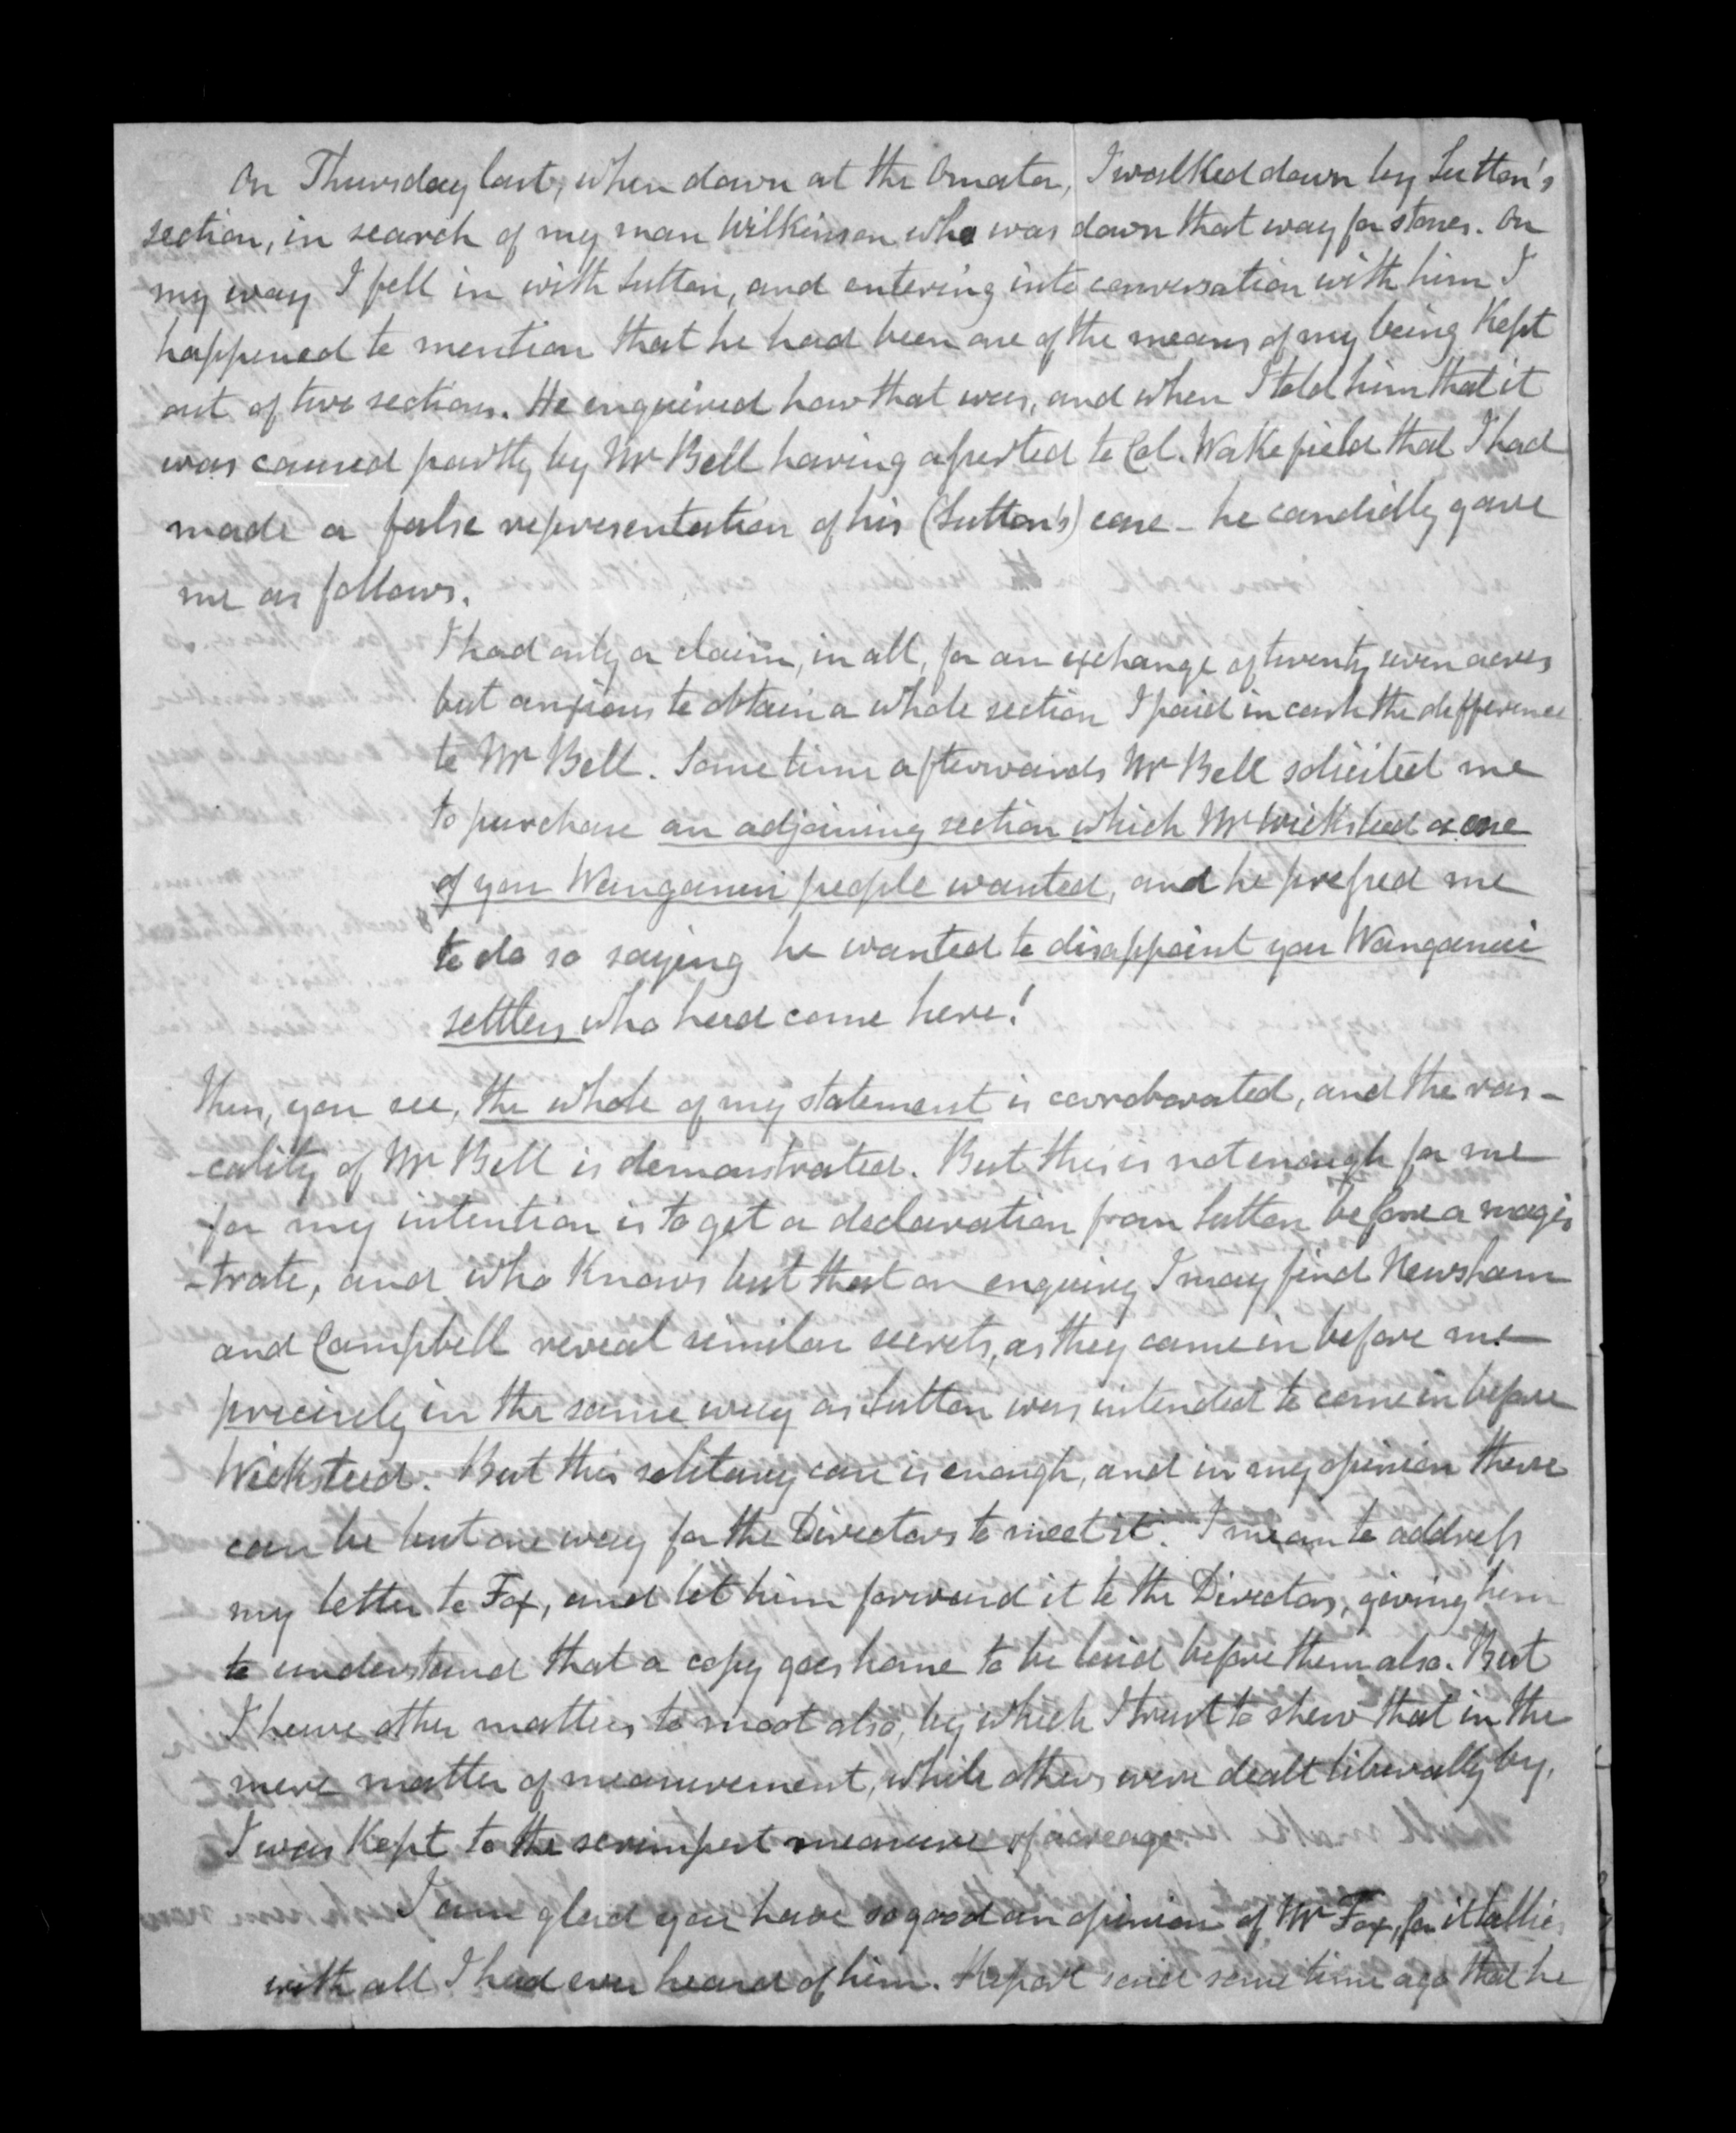 On Thursday last, when down at the Omata, I walked down by Sutton's
section, in search of my man Wilkinson who was down that way for stones. On
my way I fell in with Sutton, and entering into conversation with him I
happened to mention that he had been one of the means of my being kept
out of two sections. He enquired how that was, and when I told him that it
was caused partly by Mr Bell having asserted to Col. Wakefield that I had
made a false representation of his (Sutton's) case - he candidly gave
me as follows.
I had only a claim, in all, for an exchange of twenty seven acres
but anxious to obtain a whole section I paid in cash the difference
to Mr Bell. Some time afterwards Mr Bell solicited me
to purchase an adjoining section which Mr Wicksteed or one
of you Wanganui people wanted, and he pressed me
to do so saying he wanted to disappoint you Wanganui
settlers who had come here!
Then, you see, the whole of my statement is corroborated, and the ras-
-cality of Mr Bell is demonstrated. But this is not enough for me
for my intention is to get a declaration from Sutton before a magis
-trate, and who knows but that on enquiry I may find Newsham
and Campbell reveal similar secrets, as they came in before me
precisely in the same way as Sutton was intended to come in before
Wicksteed. But this solitary case is enough, and in my opinion there
can be but one way for the Directors to meet it. I mean to address
my letter to Fox, and let him forward it to the Directors, giving him
to understand that a copy goes home to be laid before them also. But
I have other matters to moot also, by which I trust to shew that in the
mere matter of measurement, while others were dealt liberally by,
I was kept to the scrimpest measure of acreage.
I am glad you have so good an opinion of Mr Fox, for it tallies
with all I had ever heard of him. Report said some time ago that he